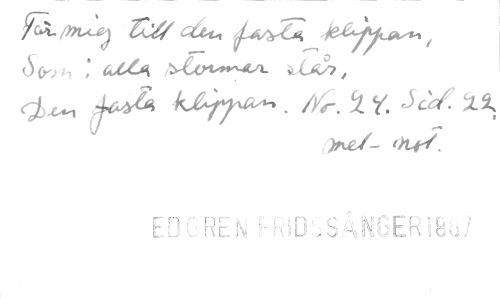 För mig till den fasta klippan,
Som i alla stormar står,
Den fasta klippan. No. 24. Sid. 22.
mel- not.
EDGREN FRIDSSÅNGER 1867